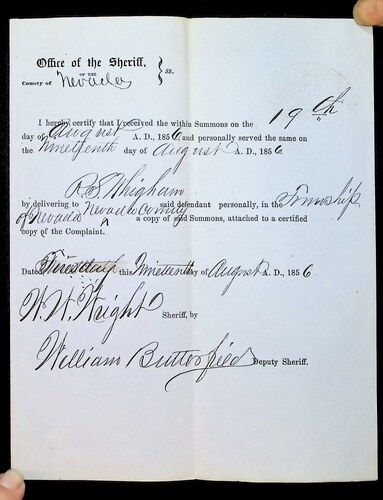 Office of the Sheriff,
OF THE
County of Nevada } ss.
I hereby certify that I received the within Summons on the 19th
day of August A. D., 1856, and personally served the same on
the Nineteenth day of August A. D., 1856
R S Whigham
by delivering to said defendant personally, in the Township
of Nevada Nevada County ^ a copy of said Summons, attached to a certified
copy of the Complaint.
Dated this Nineteenth day of August A. D., 1856
W. W. Wright Sheriff, by
William Butterfield Deputy Sheriff.